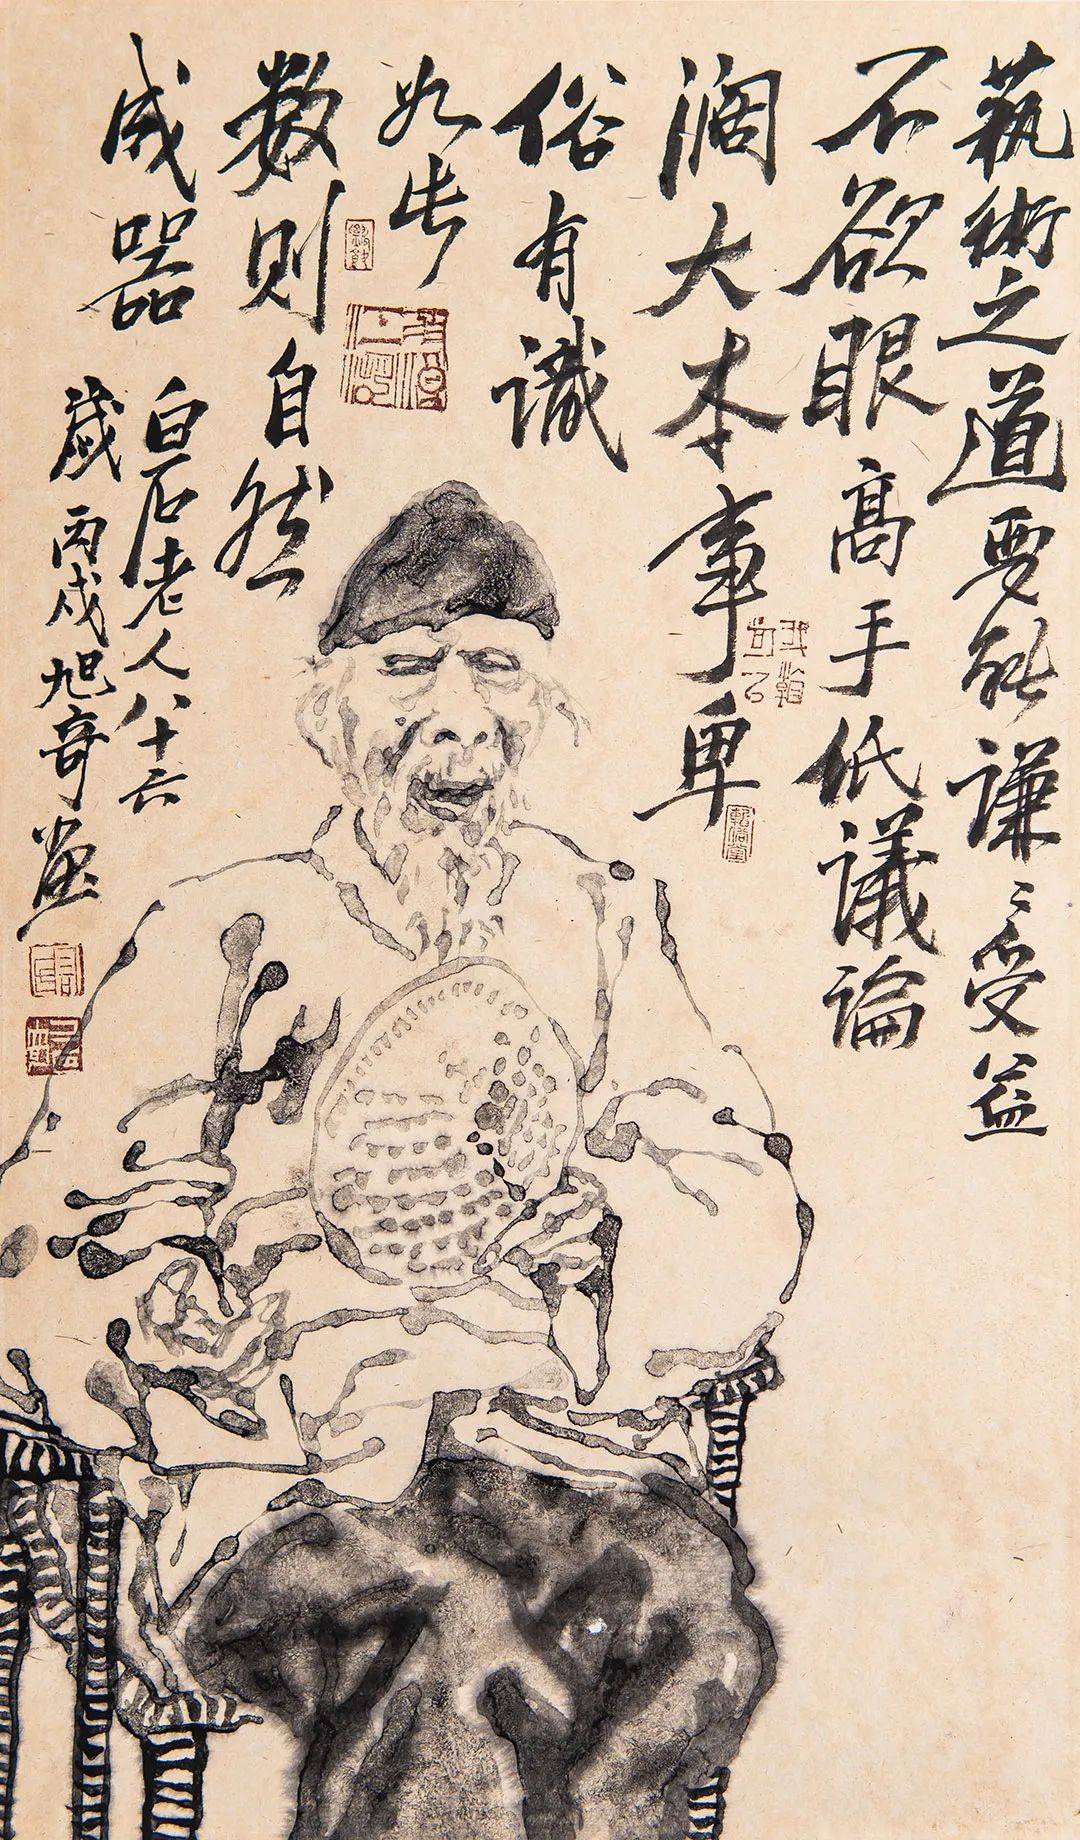 藝術之道要能謙謙受益
不欲眼高手低議論
闊大本事卑
俗有識
如此
數則自然
成器
白石老人八十六
歲丙戌旭奇畫